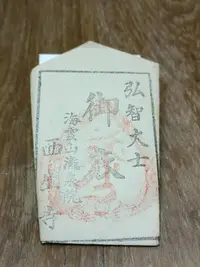 弘智大士
御衣
海雲山
西生寺